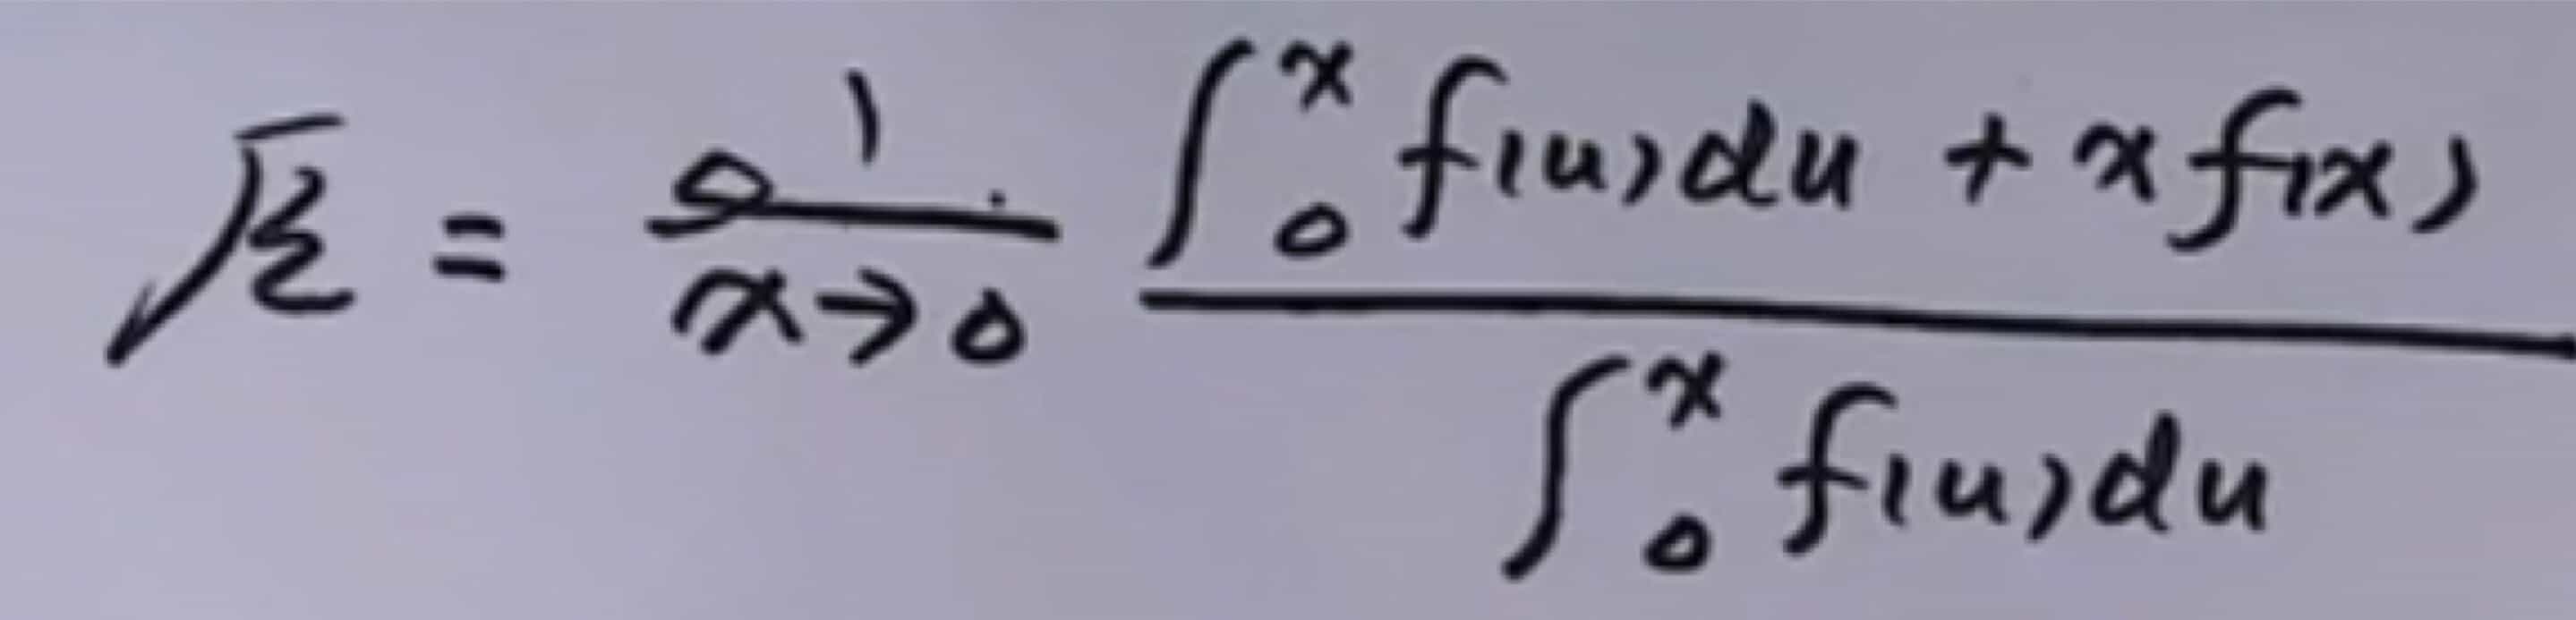 原 = \lim_{x→0} \frac{∫_0^x f(u)du + x f(x)}{∫_0^x f(u)du}